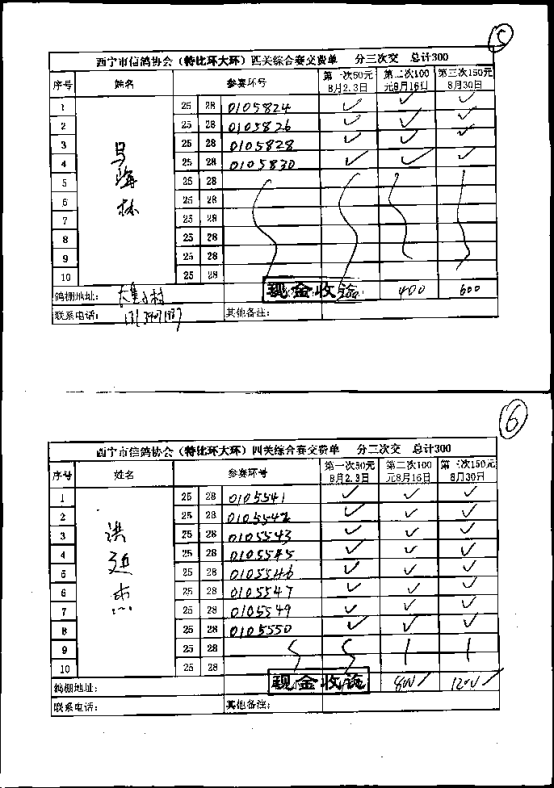 5
西宁市信鸽协会（特比环大环）四关综合赛交费单 分三次交 总计300
序号 姓名 参赛环号 第一次50元8月2.3日 第二次100元8月16日 第三次150元8月30日
1 25 28 0105824 ✓ ✓ ✓
2 25 28 0105826 ✓ ✓ ✓
3 25 28 0105828 ✓ ✓ ✓
4 25 28 0105830 ✓ ✓ ✓
5 25 28
6 25 28
7 25 28
8 25 28
9 25 28
10 25 28
鸽棚地址： 现金收讫 400 600
联系电话： 其他备注：
6
西宁市信鸽协会（特比环大环）四关综合赛交费单 分三次交 总计300
序号 姓名 参赛环号 第一次50元8月2.3日 第二次100元8月16日 第三次150元8月30日
1 25 28 0105541 ✓ ✓ ✓
2 25 28 0105542 ✓ ✓ ✓
3 25 28 0105543 ✓ ✓ ✓
4 25 28 0105545 ✓ ✓ ✓
5 25 28 0105546 ✓ ✓ ✓
6 25 28 0105547 ✓ ✓ ✓
7 25 28 0105549 ✓ ✓ ✓
8 25 28 0105550 ✓ ✓ ✓
9 25 28
10 25 28
鸽棚地址： 现金收讫 800 1200
联系电话： 其他备注：